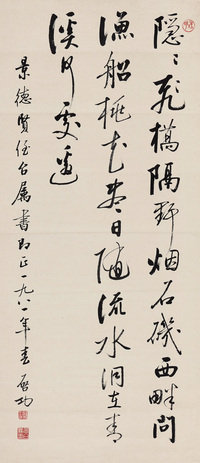 隱〻飛橋隔野烟石磯西畔問
漁船桃花盡日隨流水洞在青
溪何處邊
景德賢任台屬書即正一九八一年春 啓功